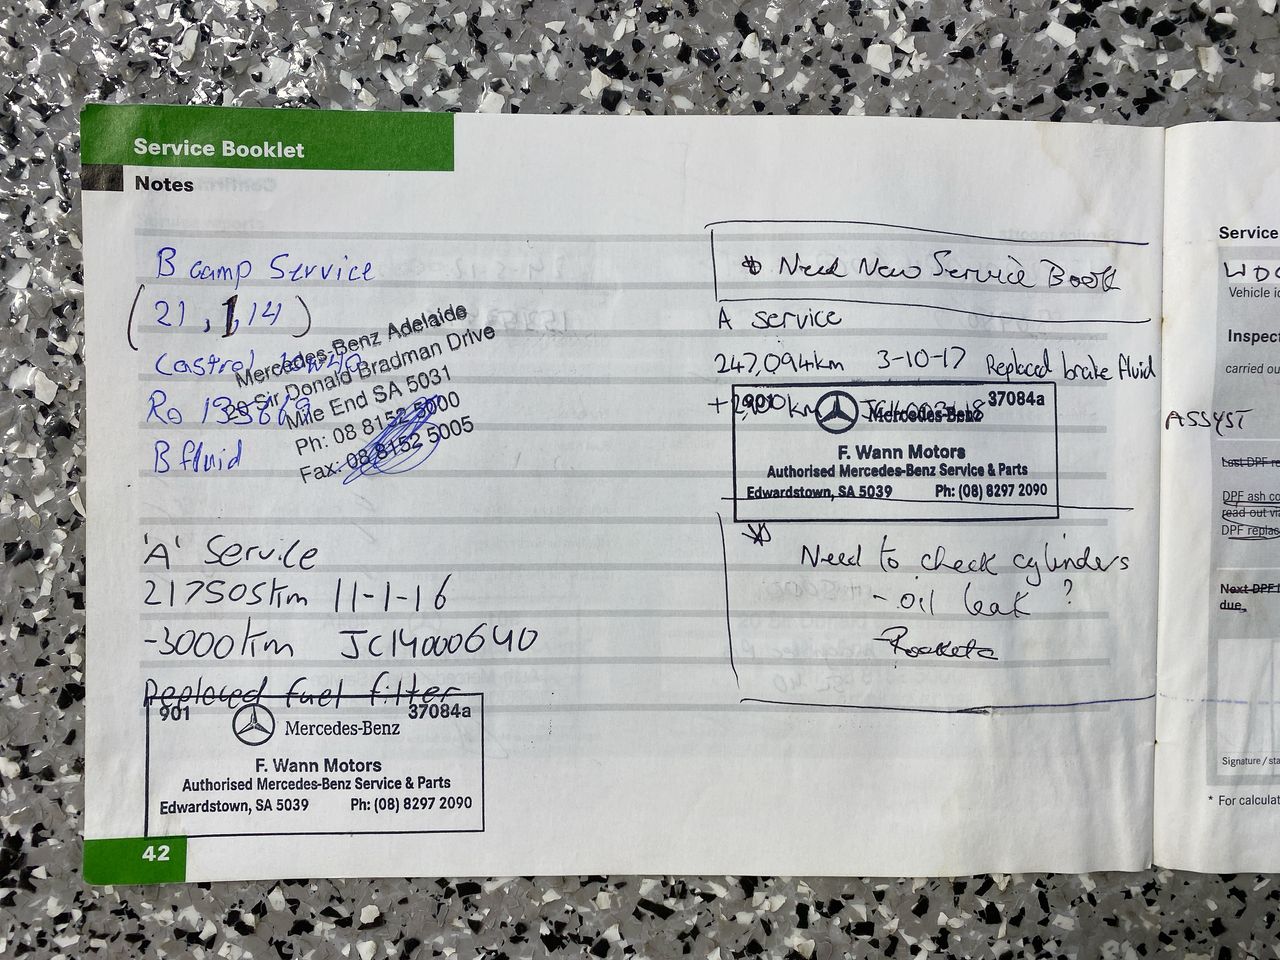 Service Booklet
Notes
B camp Service
(21, 1, 14)
Castrol
Ro
B fluid
Mercedes-Benz Adelaide
Sir Donald Bradman Drive
Mile End SA 5031
Ph: 08 8152 5000
Fax: 08 8152 5005
'A' Service
217505km 11-1-16
-3000km JC14000640
Replaced fuel filter
901 37084a
Mercedes-Benz
F. Wann Motors
Authorised Mercedes-Benz Service & Parts
Edwardstown, SA 5039 Ph: (08) 8297 2090
42
Need New Service Book
A service
247,094km 3-10-17 Replaced brake fluid
901 37084a
Mercedes-Benz
F. Wann Motors
Authorised Mercedes-Benz Service & Parts
Edwardstown, SA 5039 Ph: (08) 8297 2090
Need to check cylinders
- oil leak ?
Service
WDC
Vehicle
Inspec
carried ou
ASSYST
Last DPF re
DPF ash co
read out via
DPF replac
Next DPF
due,
Signature / sta
* For calculat